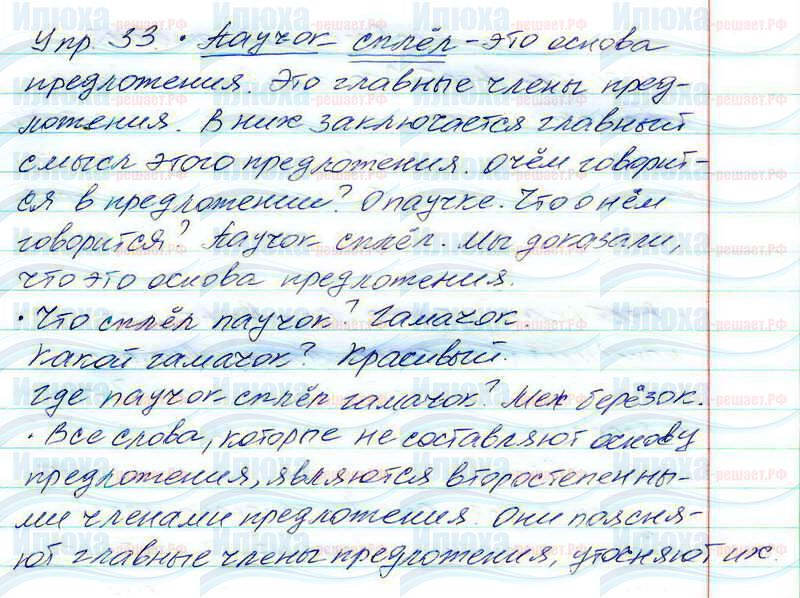 Упр. 33. • Паучок сплёл – это основа
предложения. Это главные члены пред-
ложения. В них заключается главный
смысл этого предложения. О чём говорит-
ся в предложении? О паучке. Что о нём
говорится? Паучок сплёл. Мы доказали,
что это основа предложения.
• Что сплёл паучок? Гамачок.
Какой гамачок? Красивый.
Где паучок сплёл гамачок? Меж берёзок.
• Все слова, которые не составляют основу
предложения, являются второстепенны-
ми членами предложения. Они поясня-
ют главные члены предложения, уточняют их.